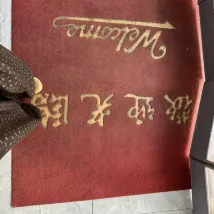 Welcome
歡迎光臨